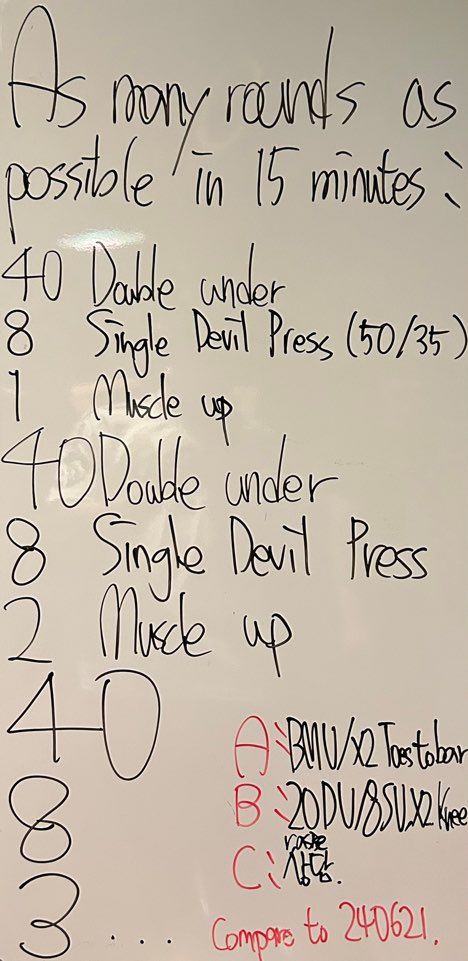 As many rounds as
possible in 15 minutes:
40 Double under
8 Single Devil Press (50/35)
1 Muscle up
40 Double under
8 Single Devil Press
2 Muscle up
40
8
3 ...
A: BMU/x2 Toes to bar
B: 20DU/8SU.x2 Knee
raise
C: 상담.
Compare to 240621.